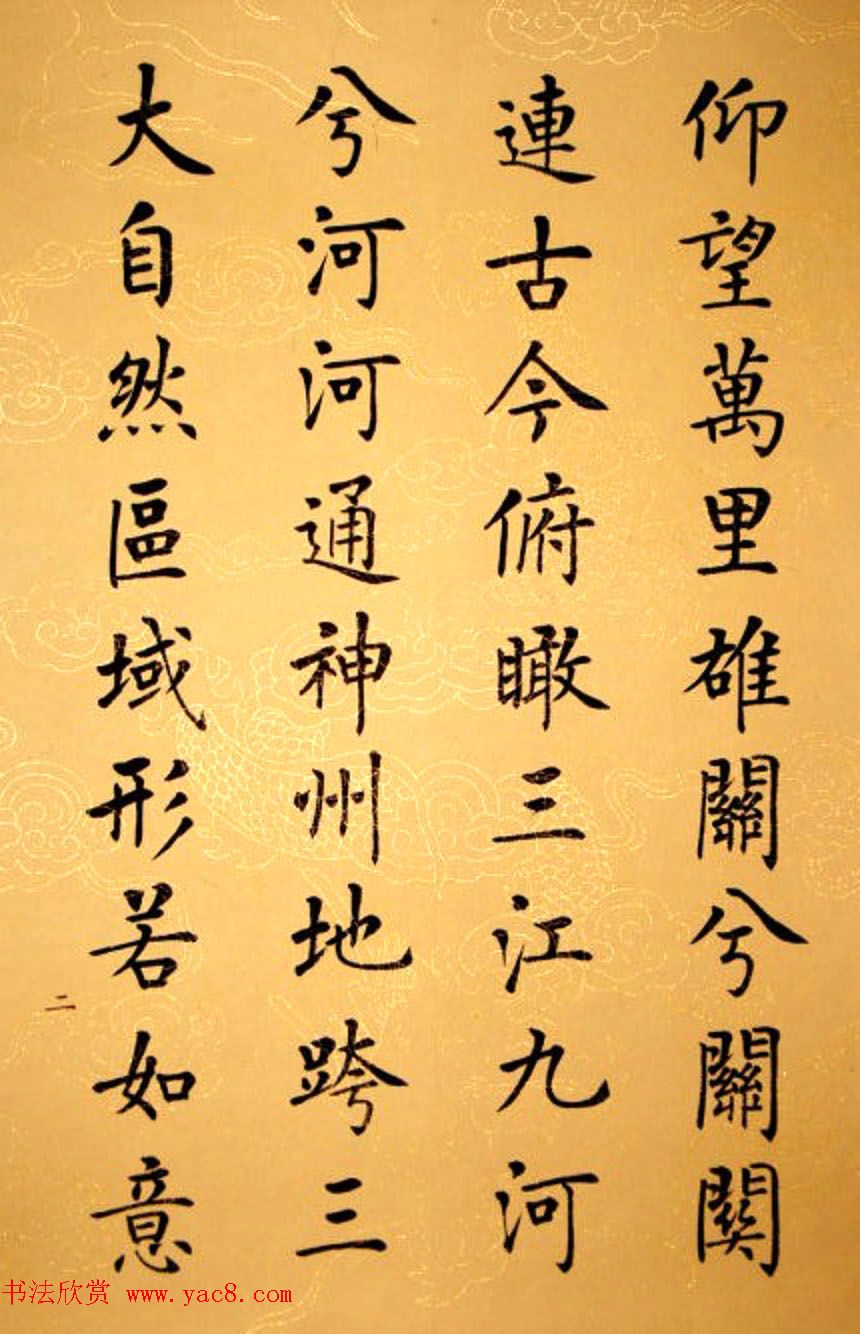 仰望萬里雄關兮關関
連古今俯瞰三江九河
兮河河通神州地跨三
大自然區域形若如意
二
书法欣赏 www.yac8.com